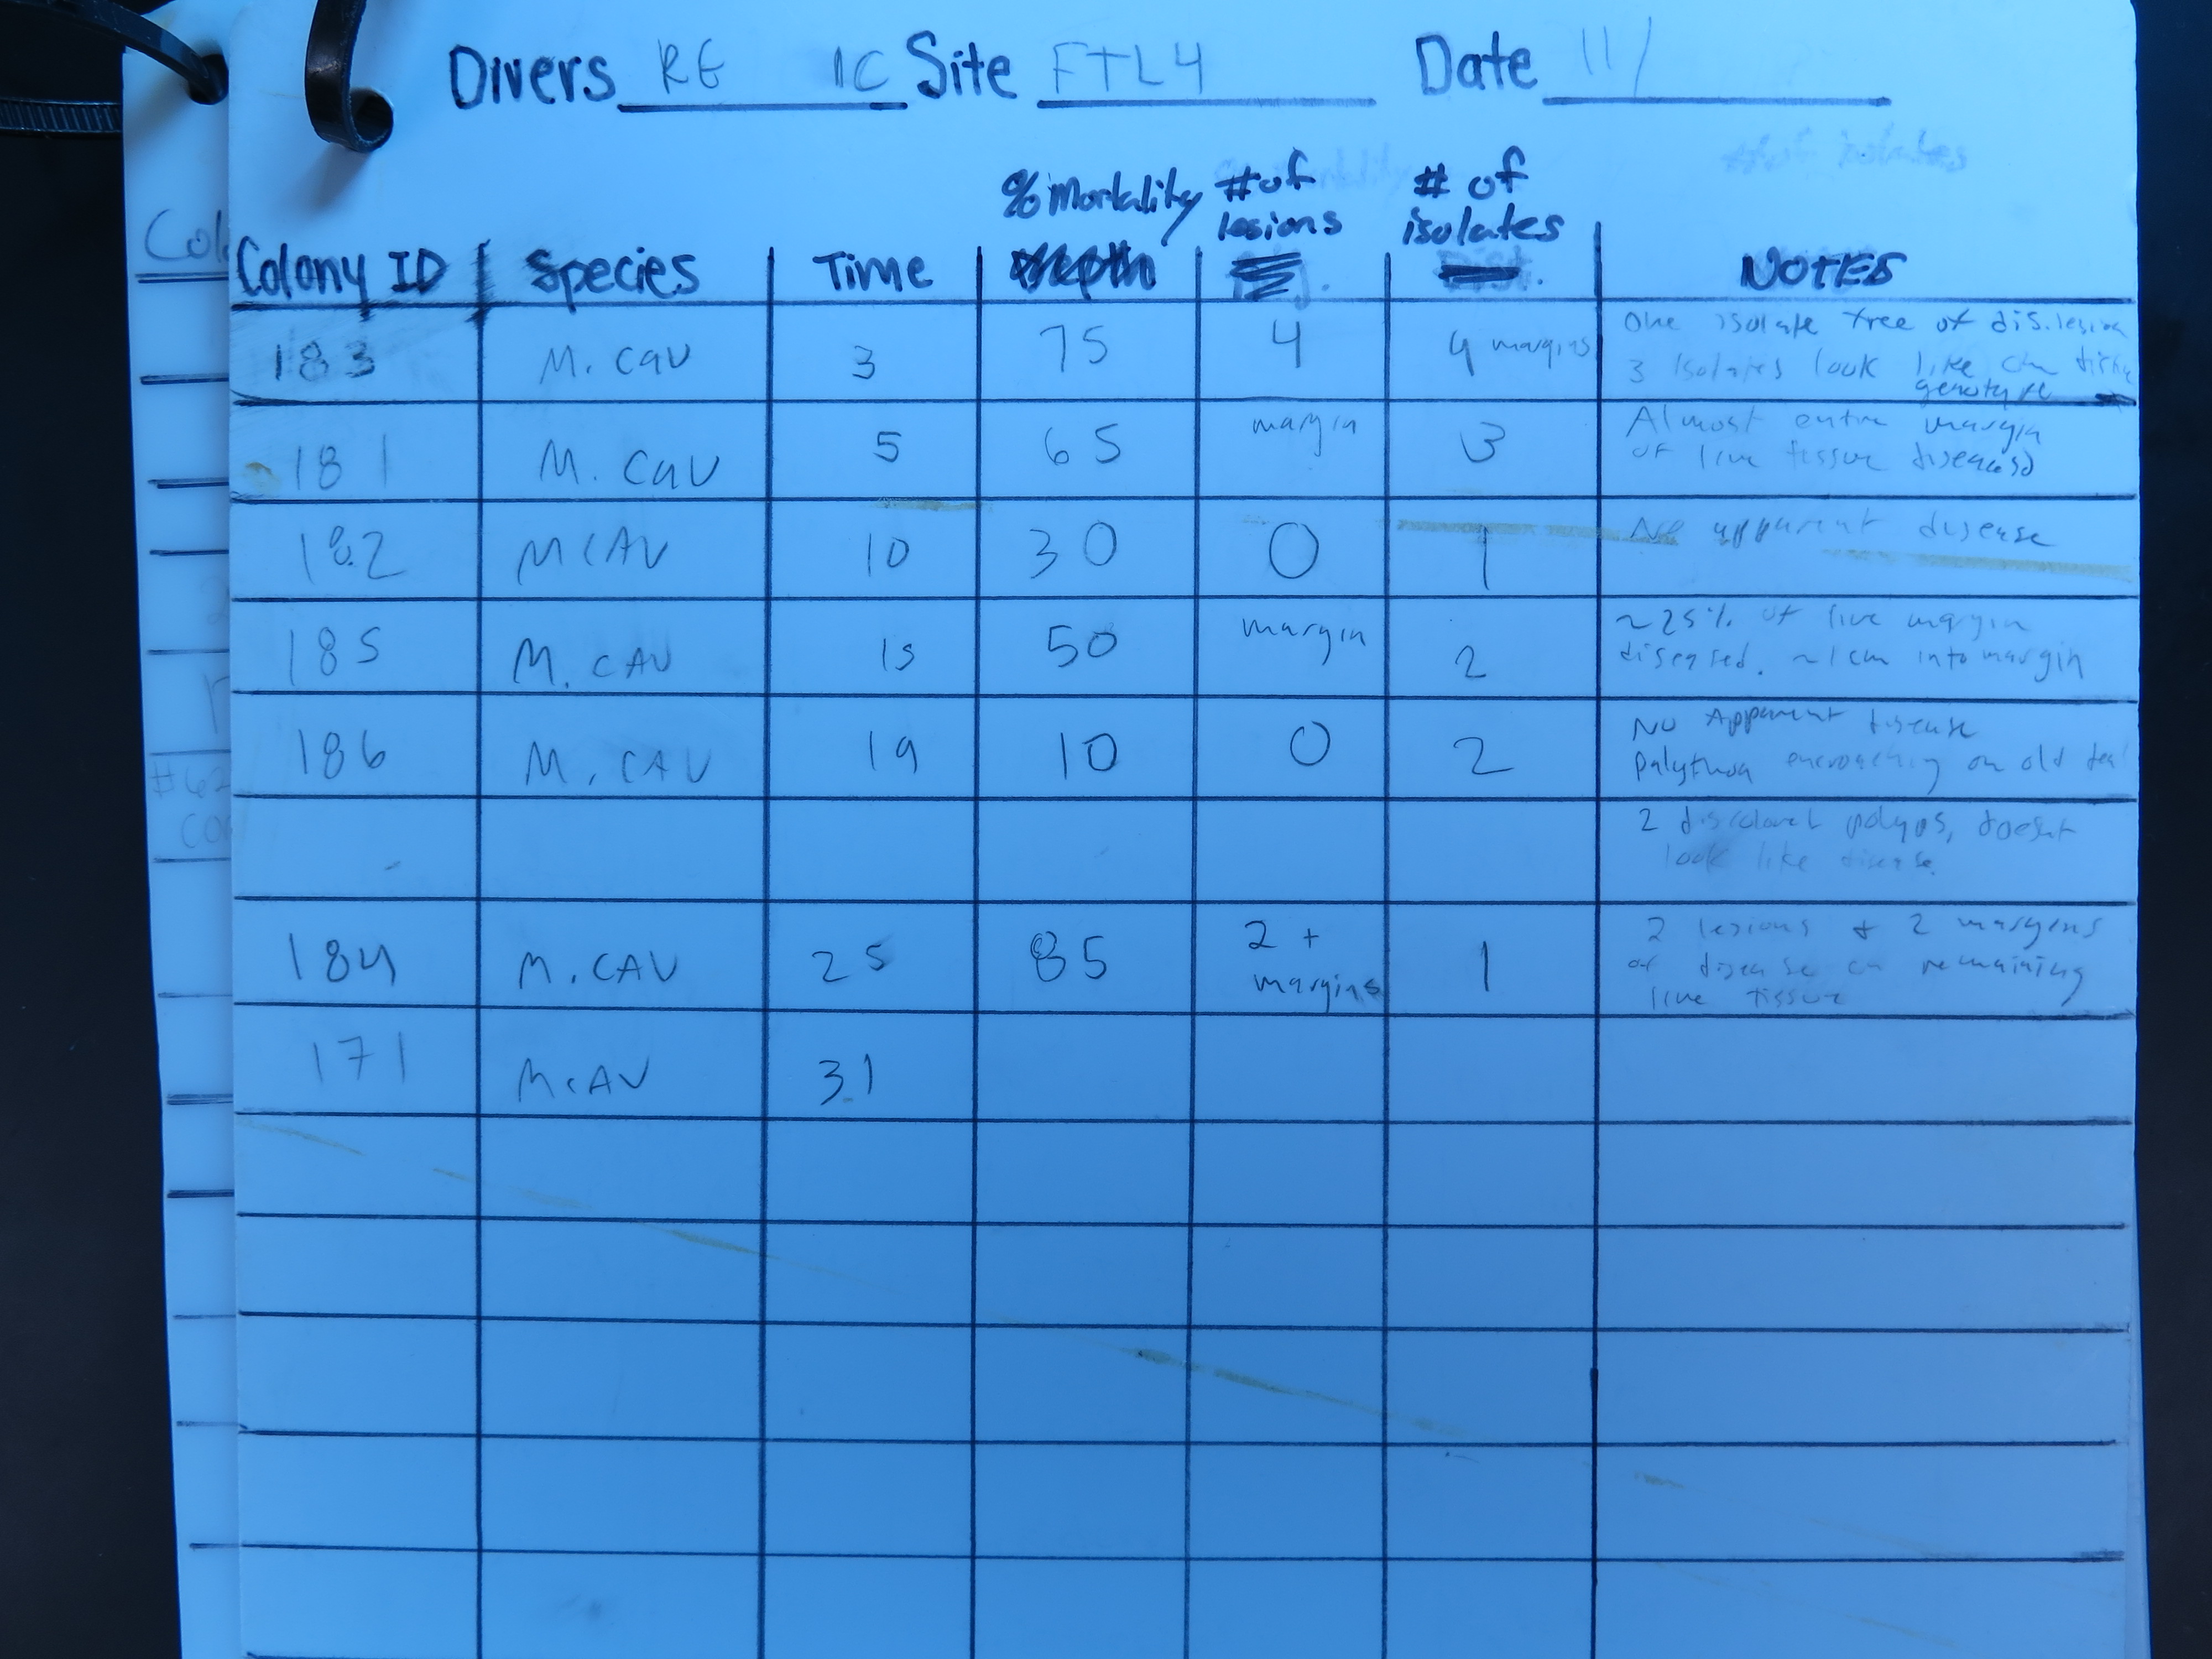 Divers RE IC Site FTL4 Date 11/
% Mortality # of lesions # of isolates
Colony ID Species Time NOTES
183 M. cav 3 75 4 4 margins one isolate free of dis. lesion
3 isolates look like
genotype
181 M. cav 5 65 margin 3 Almost entire margin
of live tissue diseased
182 MCAV 10 30 0 1 No apparent disease
185 M. CAV 15 50 margin 2 ~25% of live margin
diseased. ~1cm into margin
186 M. CAV 19 10 0 2 No Apparent disease
palythoa encroaching on old
2 discolored polyps, doesnt
look like disease.
184 M. CAV 25 85 2 + margins 1 2 lesions + 2 margins
of disease on remaining
live tissue
171 MCAV 31